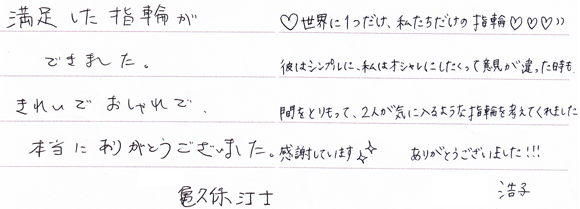 満足した指輪が
できました。
きれいでおしゃれで、
本当にありがとうございました。
亀久保
♡世界に1つだけ、私たちだけの指輪♡♡♡))
彼はシンプルに、私はオシャレにしたくって意見が違った時も、
間をとりもって、2人が気に入るような指輪を考えてくれました
感謝しています ありがとうございました!!!
浩子